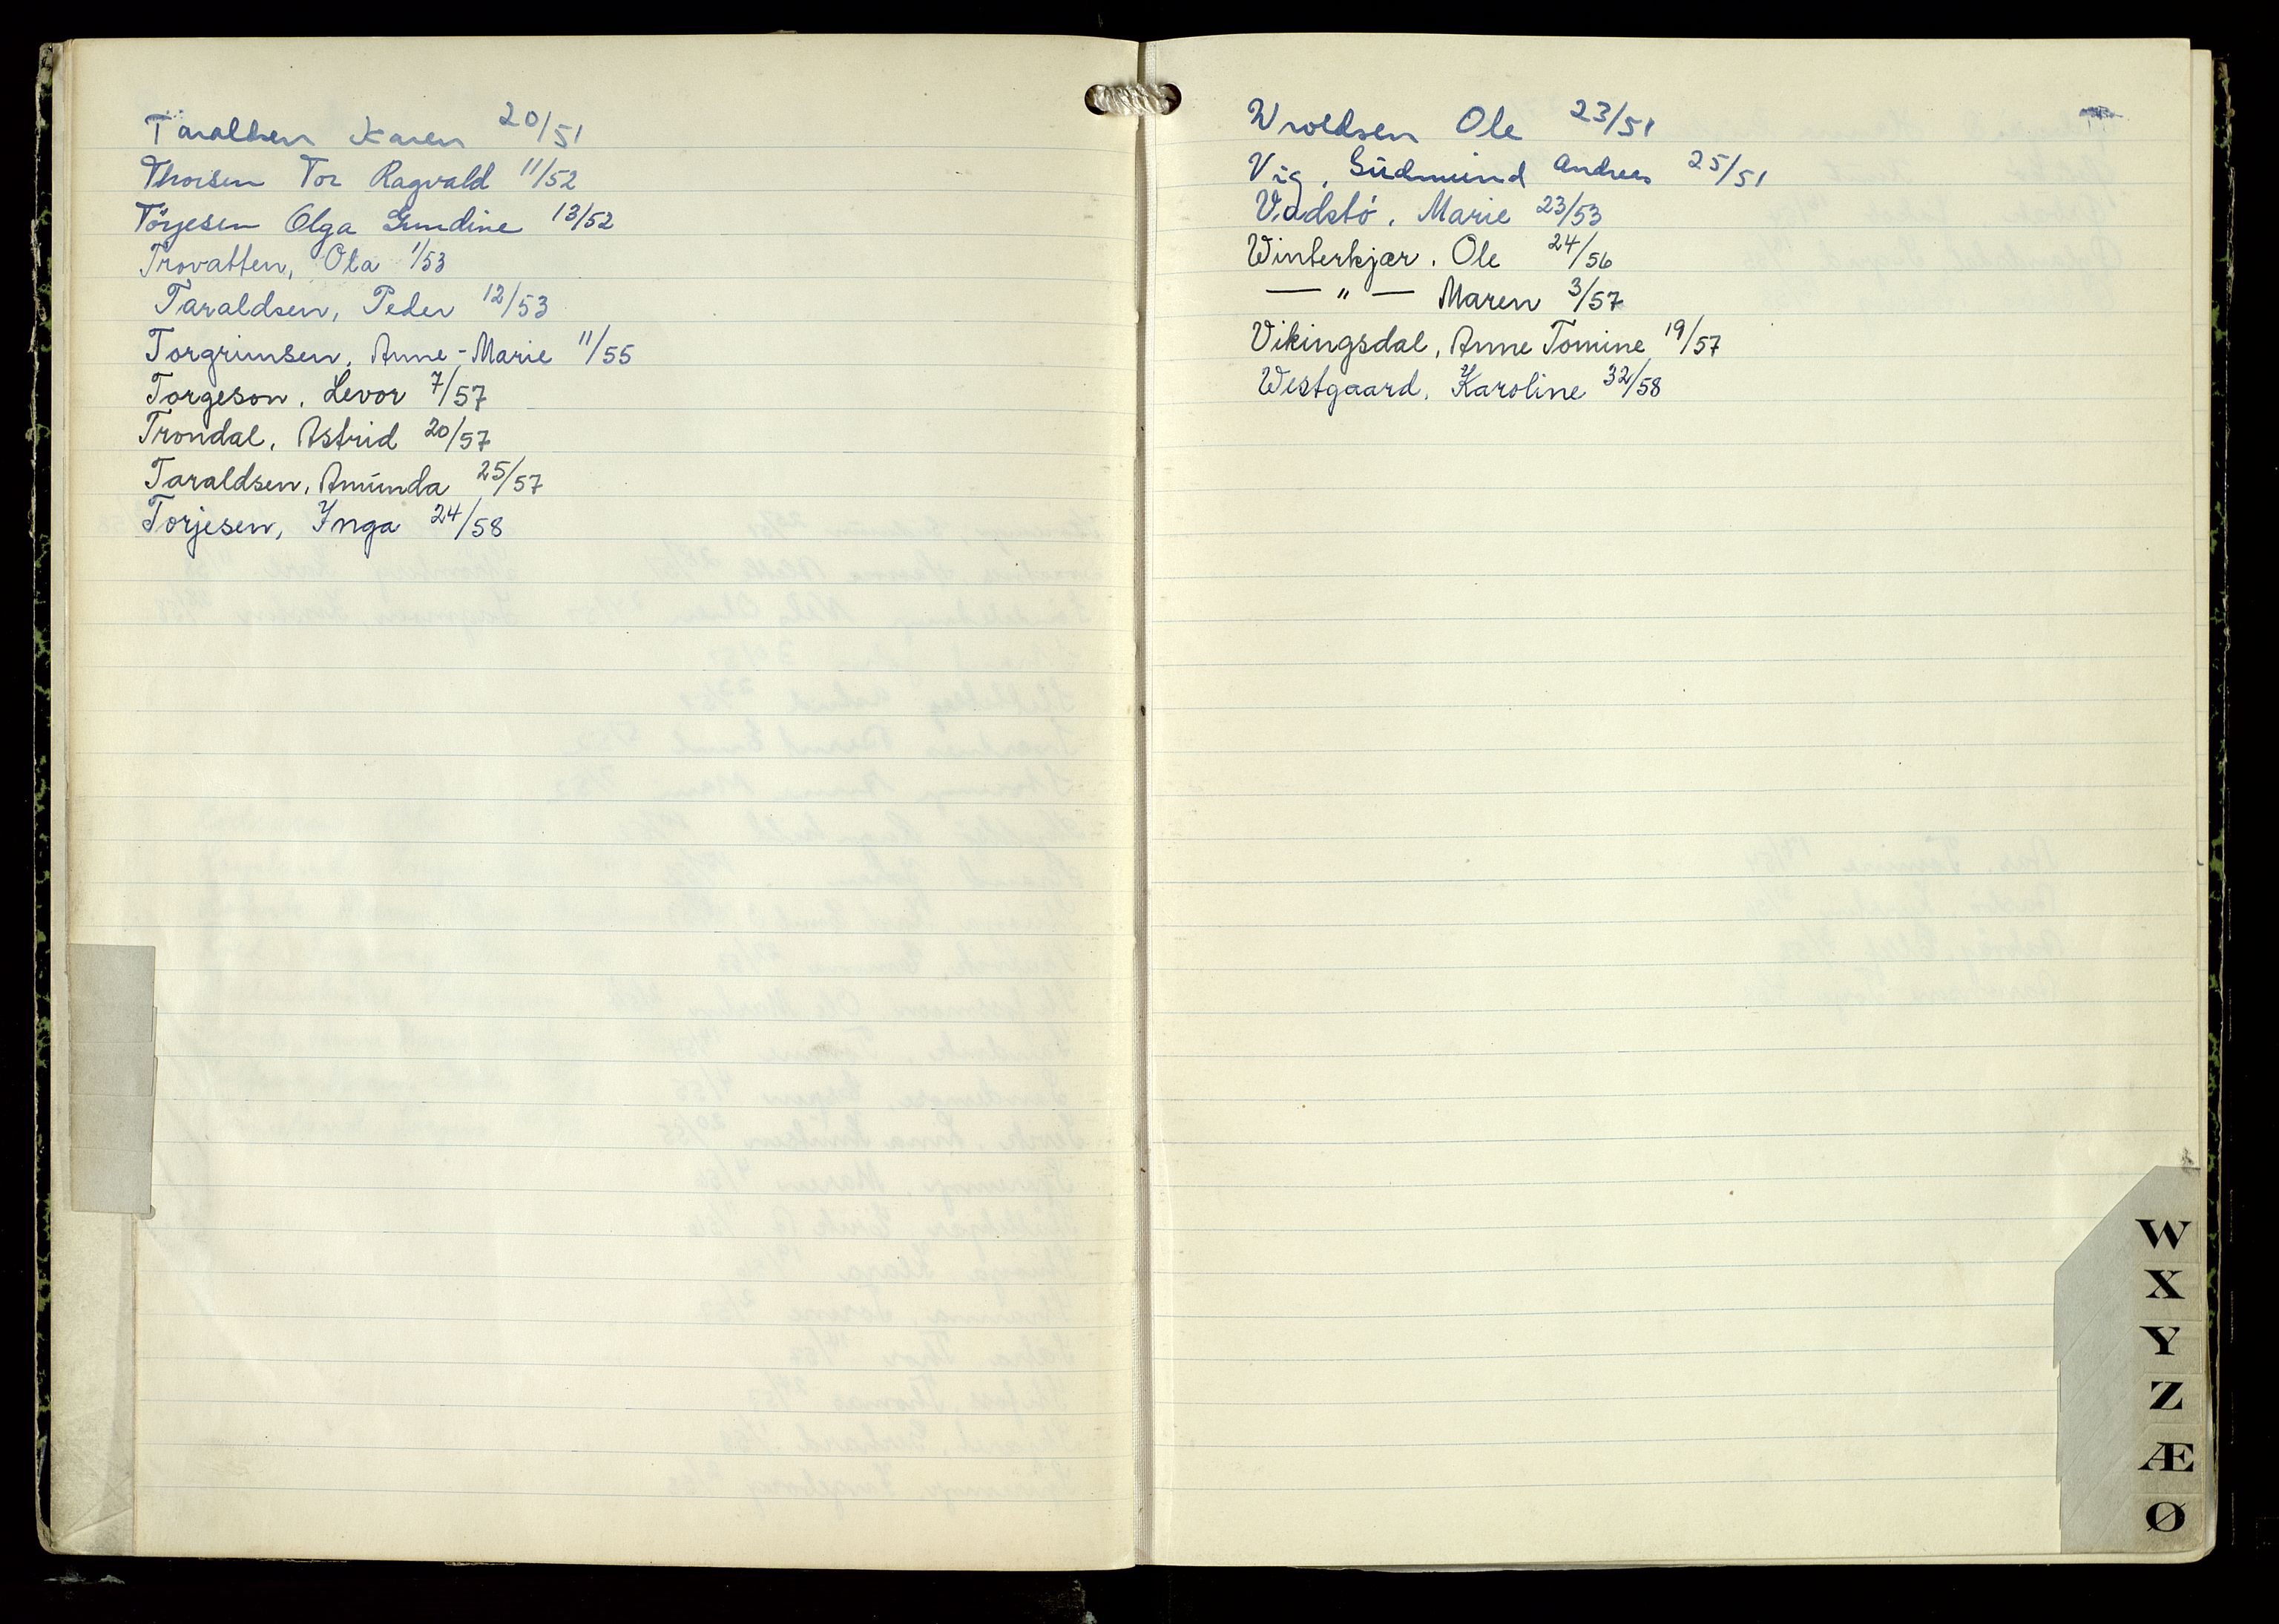 Taraldsen Karen 20/51
Thorsen Tor Ragvald 11/52
Törjesen Olga Gundine 13/52
Trovatten, Ola 1/53
Taraldsen, Peder 12/53
Torgrimsen, Anne-Marie 11/55
Torgeson, Levor 7/57
Trondal, Astrid 20/57
Taraldsen, Amunda 25/57
Torjesen, Ynga 24/58
Wroldsen Ole 23/51
Vig, Gudmund Andreas 25/51
Vadstö, Marie 23/53
Winterkjær, Ole 24/56
— " — Maren 3/57
Vikingsdal, Anne Tomine 19/57
Westgaard, Karoline 32/58
W
X
Y
Z
Æ
Ø